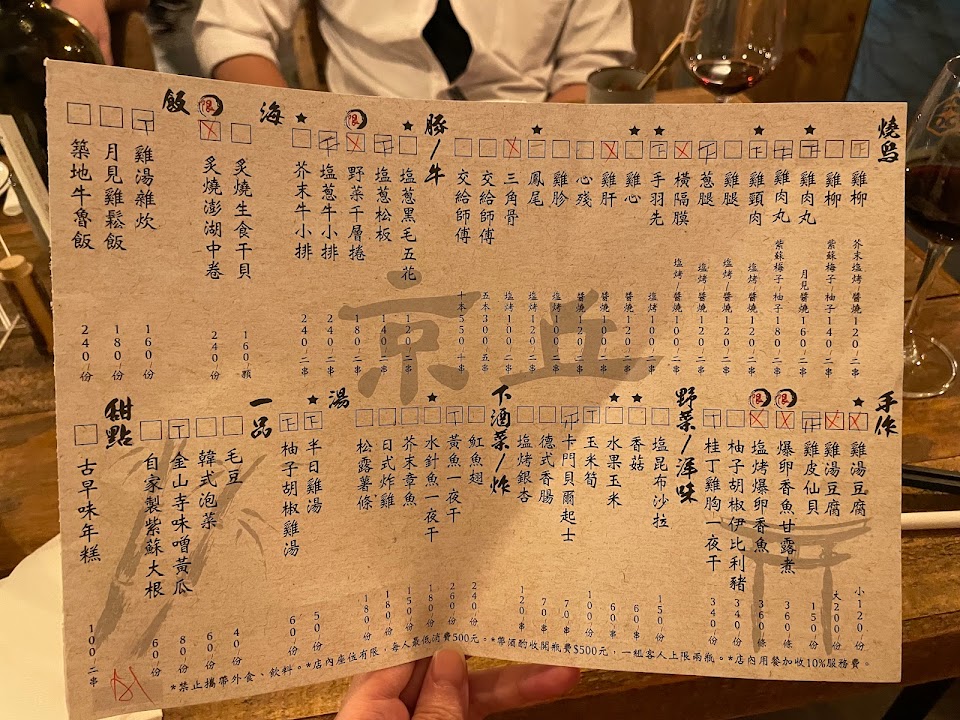 燒鳥
雞柳 芥末塩烤/醬燒 120/二串
雞柳 紫蘇梅子/柚子 140/二串
雞肉丸 月見醬燒 160/二串
雞肉丸 紫蘇梅子/柚子 180/二串
雞頸肉 塩烤/醬燒 120/二串
雞腿 塩烤/醬燒 120/二串
葱腿 塩烤/醬燒 120/二串
橫隔膜 塩烤/醬燒 100/二串
手羽先 塩烤 120/二串
雞心 醬燒 120/二串
雞肝 醬燒 100/二串
心殘 醬燒 120/二串
雞胗 塩烤 120/二串
鳳尾 塩烤 120/二串
三角骨 塩烤 100/二串
交給師傅 五本 300/五串
交給師傅 十本 550/十串
豚/牛
塩葱黑毛五花 120/二串
塩葱松板 140/二串
野菜千層捲 180/二串
塩葱牛小排 240/二串
芥末牛小排 240/二串
海
炙燒生食干貝 160/顆
限
炙燒澎湖中卷 240/份
飯
雞湯雜炊 160/份
月見雞鬆飯 180/份
築地牛魯飯 240/份
京丘
手作
雞湯豆腐 小120/份
雞湯豆腐 大200/份
雞皮仙貝 150/份
限
爆卵香魚甘露煮 360/條
限
塩烤爆卵香魚 360/條
柚子胡椒伊比利豬 340/份
桂丁雞胸一夜干 340/份
野菜/洋味
塩昆布沙拉 150/份
香菇 60/串
水果玉米 60/串
玉米筍 100/份
卡門貝爾起士 70/串
德式香腸 70/串
塩烤銀杏 120/串
下酒菜/炸
紅魚翅 240/份
黃魚一夜干 260/份
水針魚一夜干 180/份
芥末章魚 150/份
日式炸雞 180/份
松露薯條 180/份
湯
半日雞湯 50/份
柚子胡椒雞湯 60/份
一品
毛豆 40/份
韓式泡菜 60/份
金山寺味噌黃瓜 80/份
自家製紫蘇大根 60/份
甜點
古早味年糕 100/二串
*禁止攜帶外食、飲料。*店內座位有限,每人最低消費500元。*帶酒酌收開瓶費$500元,一組客人上限兩瓶。*店內用餐加收10%服務費。